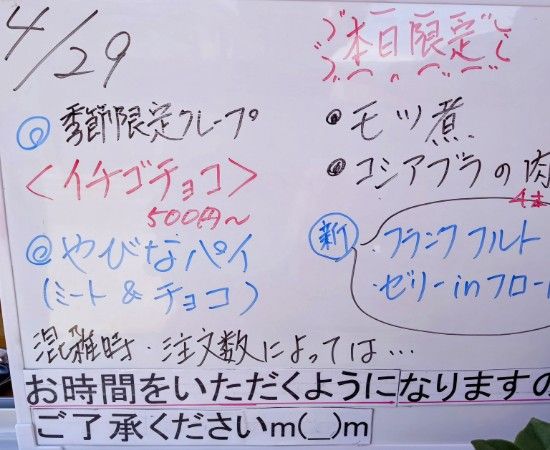 4/29
本日限定
◎季節限定クレープ
<イチゴチョコ>
500円～
◎やびなパイ
(ミート & チョコ)
●モツ煮
●コシアブラの肉
4本
新
・フランクフルト
・ゼリー in フロー
混雑時・注文数によっては…
お時間をいただくようになりますの
ご了承くださいm(__)m